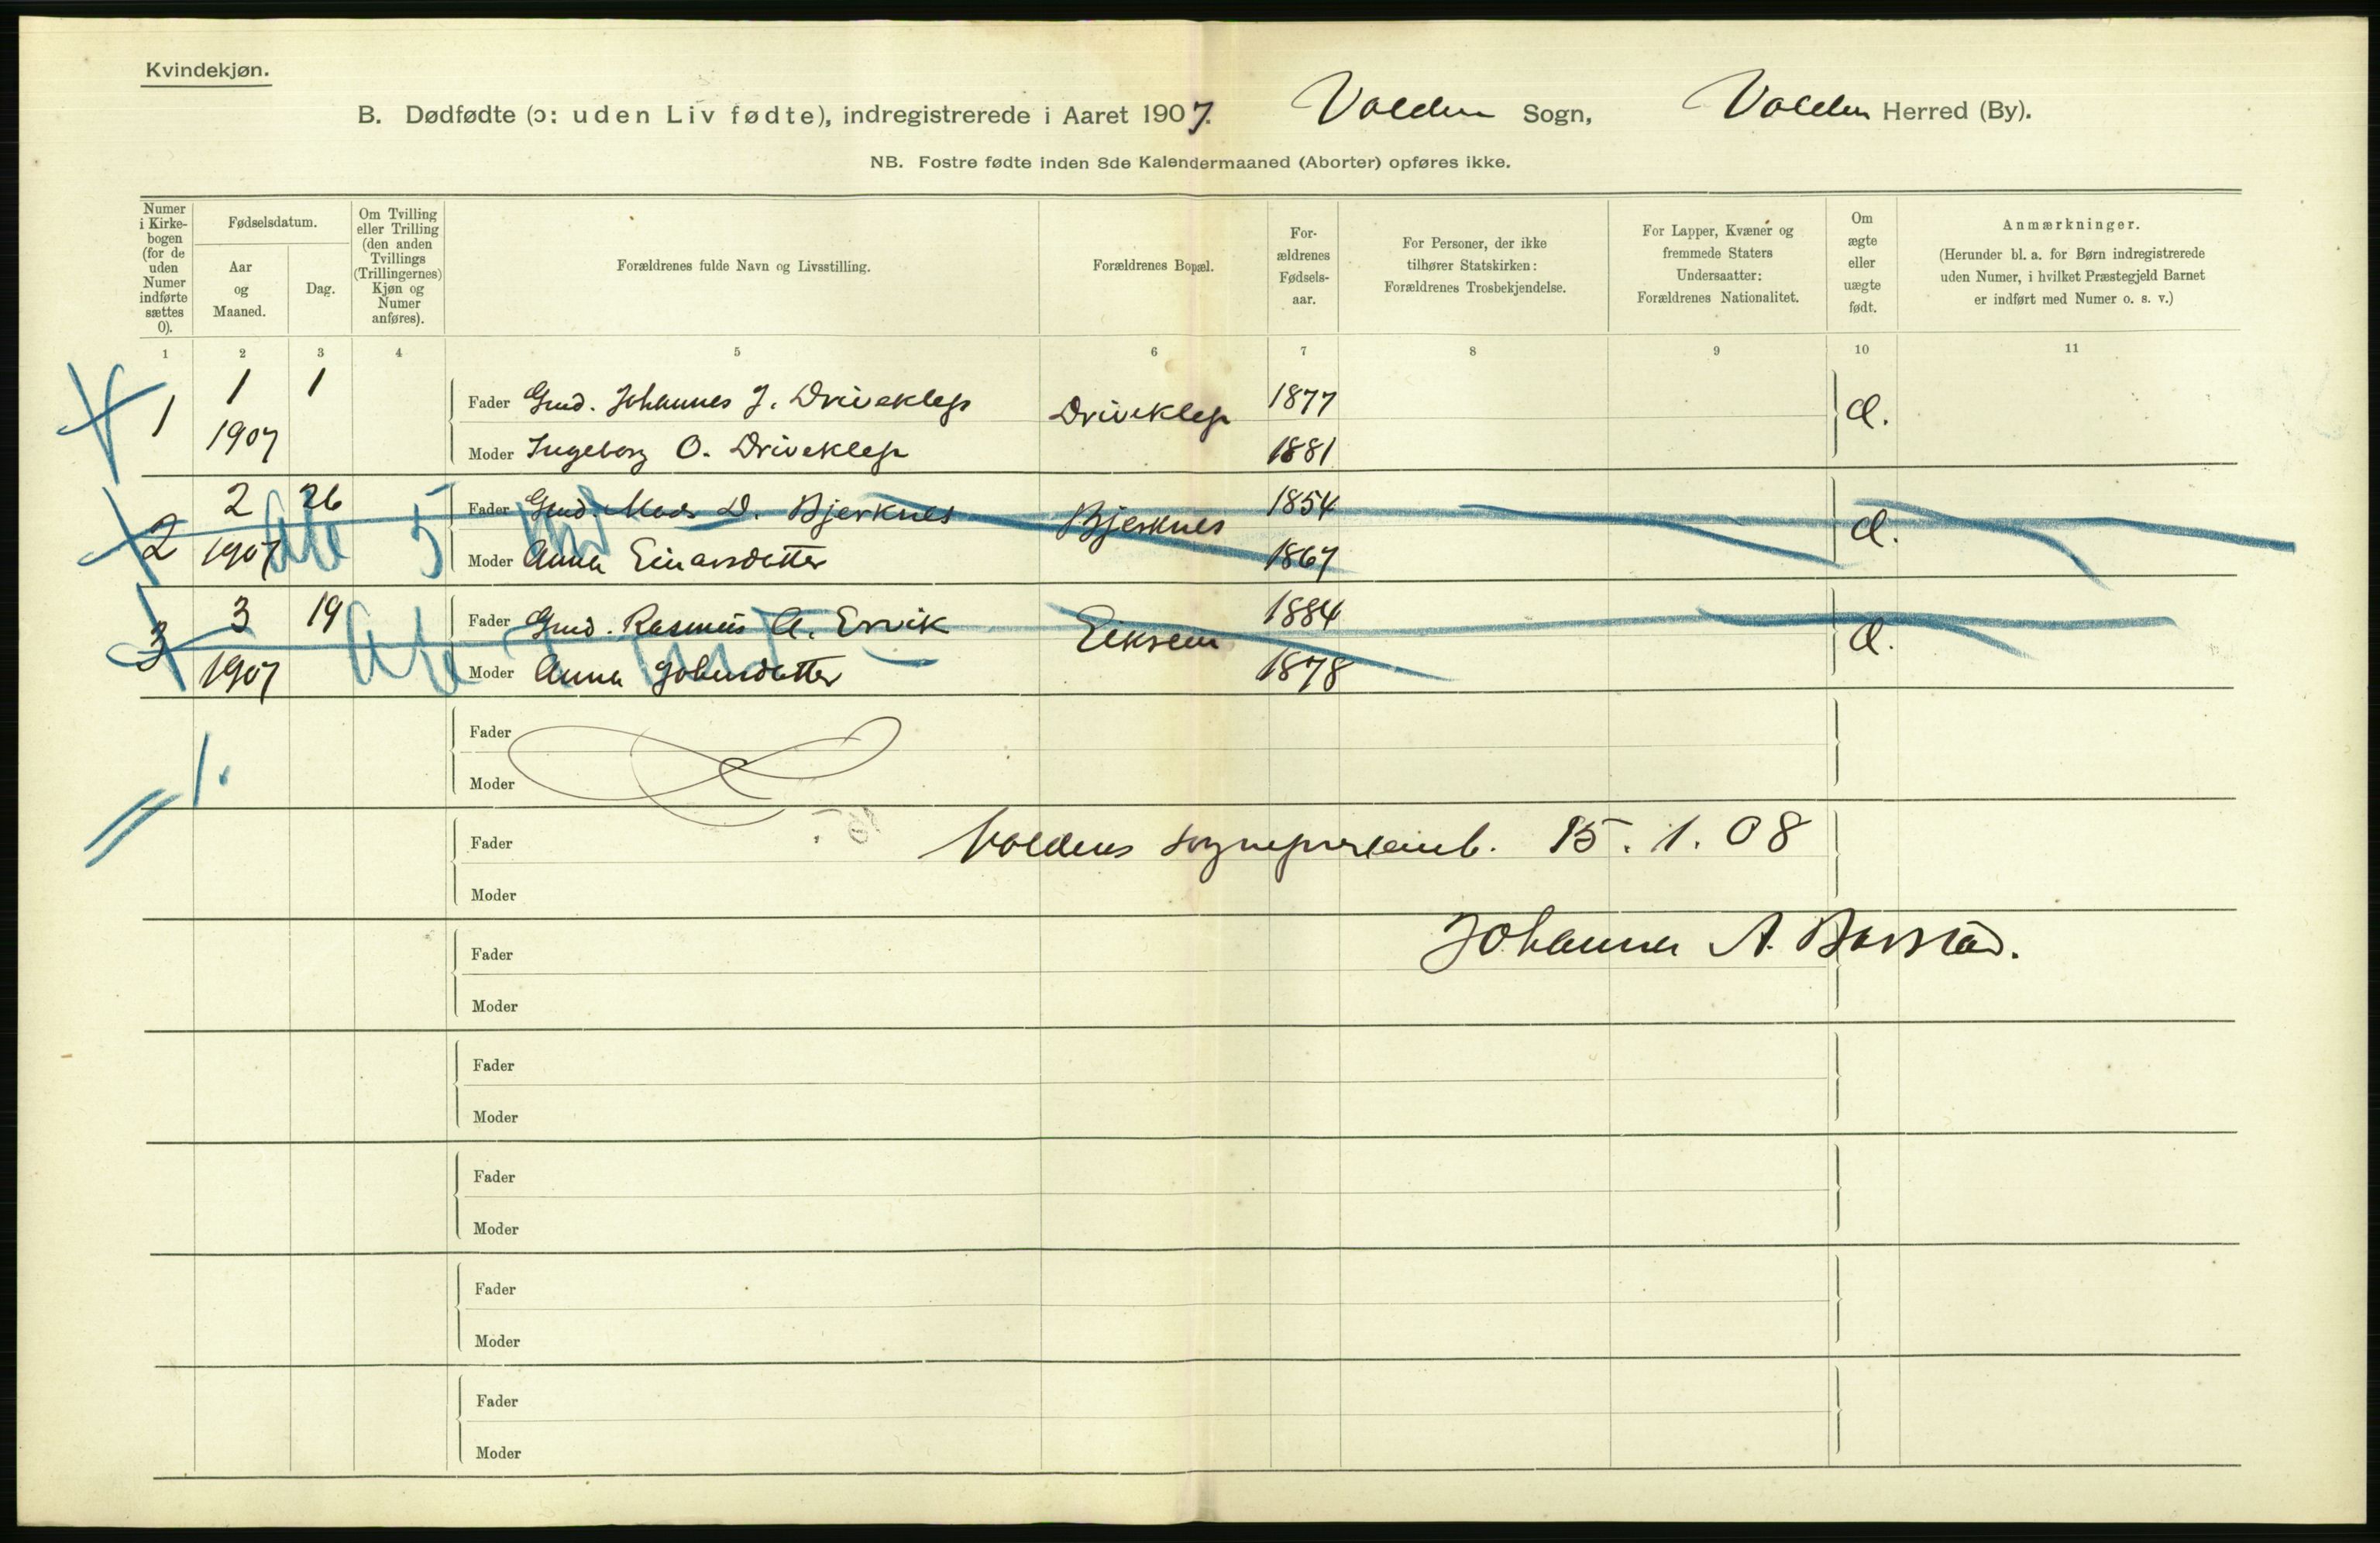 Kvindekjøn.
B. Dødfødte (ɔ: uden Liv fødte), indregistrerede i Aaret 1907. Volden Sogn, Volden Herred (By).
NB. Fostre fødte inden 8de Kalendermaaned (Aborter) opføres ikke.
Numer i Kirkebogen (for de uden Numer indførte sættes 0).
Fødselsdatum.
Aar og Maaned.
Dag.
Om Tvilling eller Trilling (den anden Tvillings (Trillingernes) Kjøn og Numer anføres).
Forældrenes fulde Navn og Livsstilling.
Forældrenes Bopæl.
Forældrenes Fødselsaar.
For Personer, der ikke tilhører Statskirken: Forældrenes Trosbekjendelse.
For Lapper, Kvæner og fremmede Staters Undersaatter: Forældrenes Nationalitet.
Om ægte eller uægte født.
Anmærkninger.
(Herunder bl. a. for Børn indregistrerede uden Numer, i hvilket Præstegjeld Barnet er indført med Numer o. s. v.)
1 2 3 4 5 6 7 8 9 10 11
1 1 1 Fader Gmd. Johannes J. Driveklep Driveklep 1877
1907 Moder Ingeborg O. Driveklep 1881
2 2 26 Fader Gmd. Mads D. Bjerknes Bjerknes 1854
1907 Moder Anna Einarsdatter 1867
3 3 19 Fader Gmd. Rasmus A. Ervik Eiksem 1884
1907 Moder Anna Johnsdatter 1878
1.
Fader
Moder
Fader Voldens 15.1.08
Moder
Fader Johannes A. Barstad.
Moder
Fader
Moder
Fader
Moder
Fader
Moder
Fader
Moder